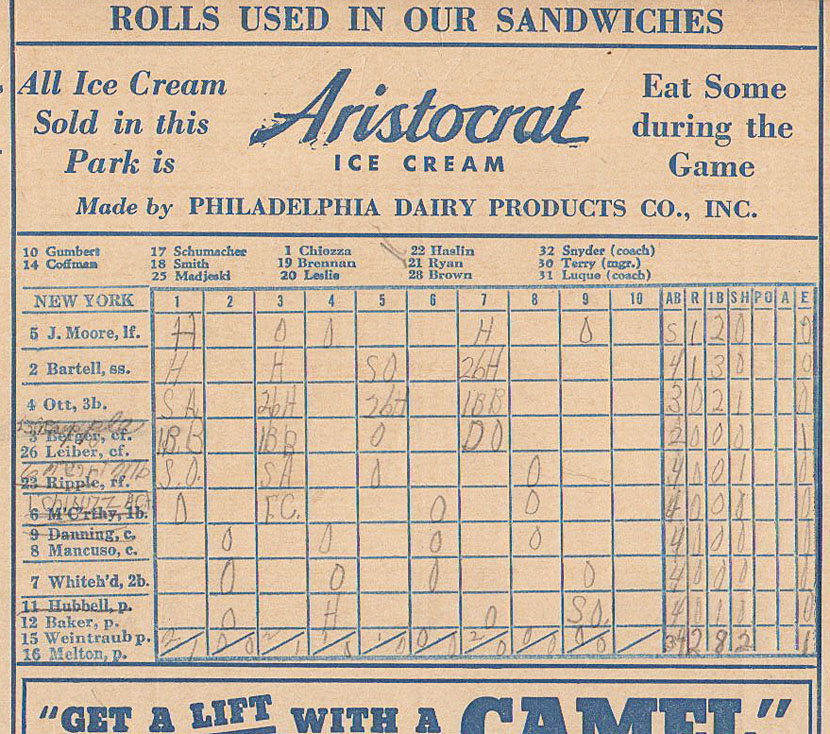 ROLLS USED IN OUR SANDWICHES
All Ice Cream Sold in this Park is
Aristocrat
ICE CREAM
Eat Some during the Game
Made by PHILADELPHIA DAIRY PRODUCTS CO., INC.
10 Gumbert 17 Schumacher 1 Chiozza 22 Haslin 32 Snyder (coach)
14 Coffman 18 Smith 19 Brennan 21 Ryan 30 Terry (mgr.)
25 Madjeski 20 Leslie 28 Brown 31 Luque (coach)
NEW YORK 1 2 3 4 5 6 7 8 9 10 AB R 1B SH PO A E
5 J. Moore, lf. H 0 0 H 0 5 1 2 0 0
2 Bartell, ss. H H SO 2bH 4 1 3 0 0
4 Ott, 3b. SA 2bH 2bH 1BB 3 0 2 1 0
3 Berger, cf. 1BB 1BB 0 DO 2 0 0 0 1
26 Leiber, cf.
23 Ripple, rf. S.O. SA 0 0 4 0 0 1 0
6 M'C'rthy, 1b. 0 F.C. 0 0 4 0 0 0 0
9 Danning, c. 0 0 0 0 4 0 0 0 0
8 Mancuso, c.
7 Whiteh'd, 2b. 0 0 0 0 4 0 0 0 0
11 Hubbell, p.
12 Baker, p. 0 H 0 SO 4 0 1 0 0
15 Weintraub p. 2/1 0/0 2/1 1/0 1/0 0/0 2/0 0/0 0/0 34 2 8 2 1
16 Melton, p.
"GET A LIFT WITH A CAMEL"